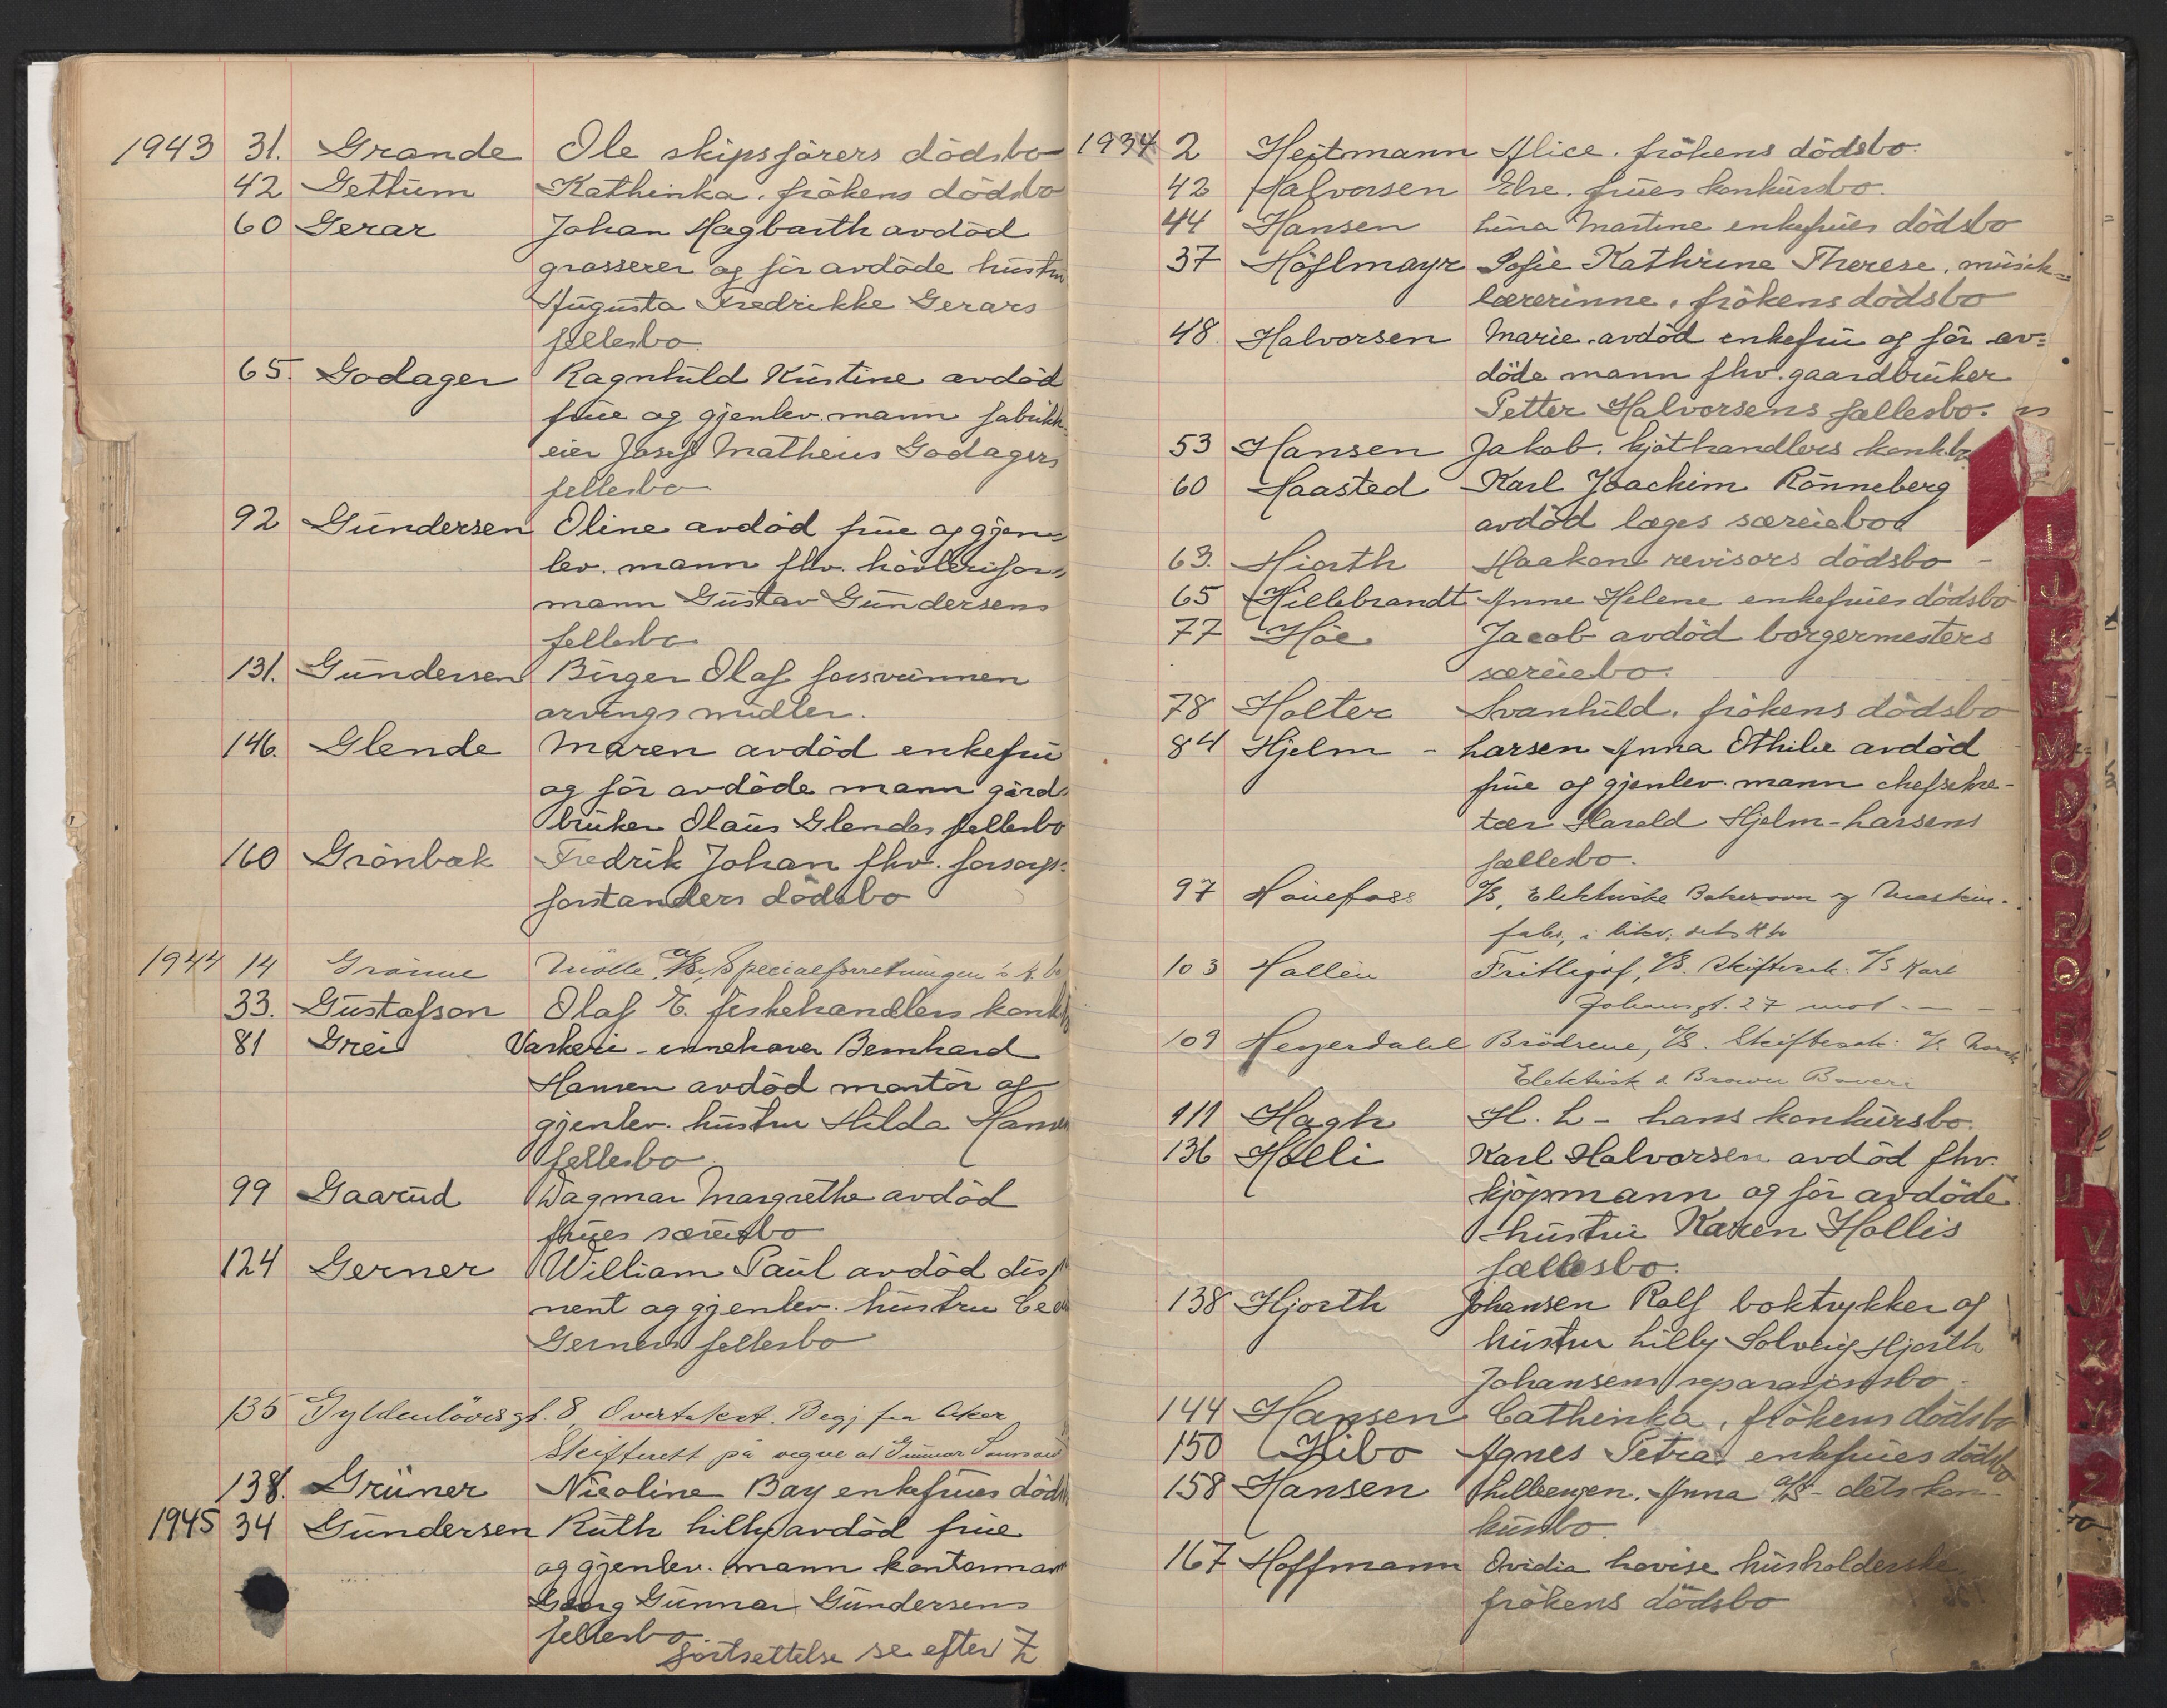 1943 31. Grande Ole skipsförers dödsbo
42 Gettum Kathinka. frökens dödsbo
60 Gerar Johan Hagbarth avdöd
grosserer og för avdöde hustru
Augusta Fredrikke Gerars
fellesbo.
65. Godager Ragnhild Kristine avdöd
frue og gjenlev. mann fabrikk-
eier Josef Matheus Godagers
fellesbo
92 Gundersen Oline avdöd frue og gjen=
lev. mann fhv. hövlerifor=
mann Gustav Gundersens
fellesbo
131. Gundersen Birger Olaf forsvunnen
arvings midler.
146. Glende Maren avdöd enkefru
og för avdöde mann gård=
bruker Olaus Glendes fellesbo
160 Grönbæk Fredrik Johan fhv. forsorgs=
forstanders dödsbo
1944 14 Grönne Mölle A/S, Specialforretningen 's k.bo
33. Gustafson Olaf E. fiskehandlers konkbo
81 Grei Vaskeri - innehaver Bernhard
Hansen avdöd montör og
gjenlev. hustru Hilda Hansen
fellesbo.
99 Gaarud Dagmar Margrethe avdöd
frues særeiebo
124 Gerner William Paul avdöd disp
nent og gjenlev. hustru
Gerners fellesbo
135 Gyldenlövesgt. 8, Overtakst. Begj. fra Aker
Skifterett på vegne av Gunnar
138. Grüner Nicoline Bay enkefrues döds
1945 34 Gundersen Ruth Lilly avdöd frue
og gjenlev. mann kontormann
Georg Gunnar Gundersens
fellesbo.
fortsettelse se efter Z
1934 2 Heitmann Alice. frökens dödsbo.
42 Halvorsen Else. frues konkursbo.
44 Hansen Lina Martine enkefrues dödsbo
37 Höflmayr Sofie Kathrine Therese. musik=
lærerinne. frökens dödsbo
48. Halvorsen Marie. avdöd enkefru og för av=
döde mann fhv. gaardbruker
Petter Halvorsens fællesbo.
53 Hansen Jakob. kjöthandlers konk.bo
60 Haasted Karl Joachim Rönneberg
avdöd læges særeiebo
63. Hiorth Haakon revisors dödsbo -
65 Hillebrandt Anne Helene enkefrues dödsbo
77 Höe Jacob avdöd borgermesters
særeiebo.
78 Holter Svanhild. frökens dödsbo
84 Hjelm - Larsen Anna Othilie avdöd
frue og gjenlev. mann chefsekre-
tær Harald Hjelm-Larsens
fællesbo.
97 Hönefoss A/S, Elektriske Bakerovn og Maskin-
fabr., i likv. dets k bo
103 Hallén Frithjof, A/S. Skiftesak: A/S Karl
Johansgt. 27 mot - -
109 Heyerdahl Brödrene, A/S. Skiftesak: A/S Norsk
Elektrisk & Brown Boveri
111 Hagh H. L - hans konkursbo.
136 Holli Karl Halvorsen avdöd fhv.
kjöpmann og för avdöde
hustru Karen Hollis
fællesbo.
138 Hjorth Johansen Rolf boktrykker og
hustru Lilly Solveig Hjorth
Johansens separasjonsbo.
144 Hansen Cathinka. frökens dödsbo
150 Hibo Agnes Petra enkefrues dödsbo
158 Hansen Anna A/S - dets kon-
kursbo.
167 Hoffmann Ovidia Lovise husholderske
frökens dödsbo
I
J
K
L
M
N
O
P
Q
R
S
U
V
W
X
Y
Z